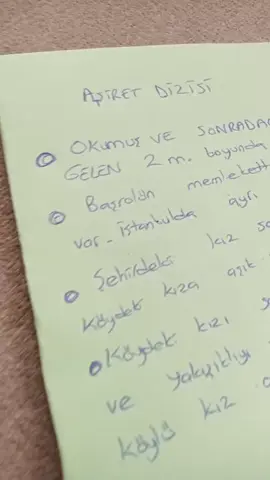 AŞİRET DİZİSİ
OKUMUŞ VE SONRADAN
GELEN 2 m. boyunda
Başrolün memlekette
var - İstanbulda ayrı
Şehirdeki kız
Köydek kıza
Köydek kızı
ve yakışıklıyı
köylü kız